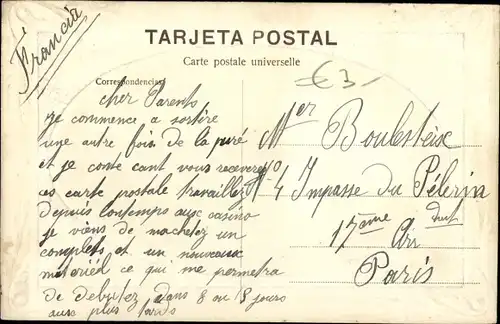 Francia
TARJETA POSTAL
Carte postale universelle
Correspondencias
€3-
cher Parents
je commence a sortire
une autre fois de la puré
et je conte cant vous receverez
ces carte postale travailler
depuis lontemps aux casino
je vians de machetez un
complets et un nouveaux
materiéd ce qui me permetra
de debutez dans 8 ou 15 jours
aux plus tards
Mer Boulesteix
No 4 Impasse du Pélerin
17ame Arr dmt
Paris